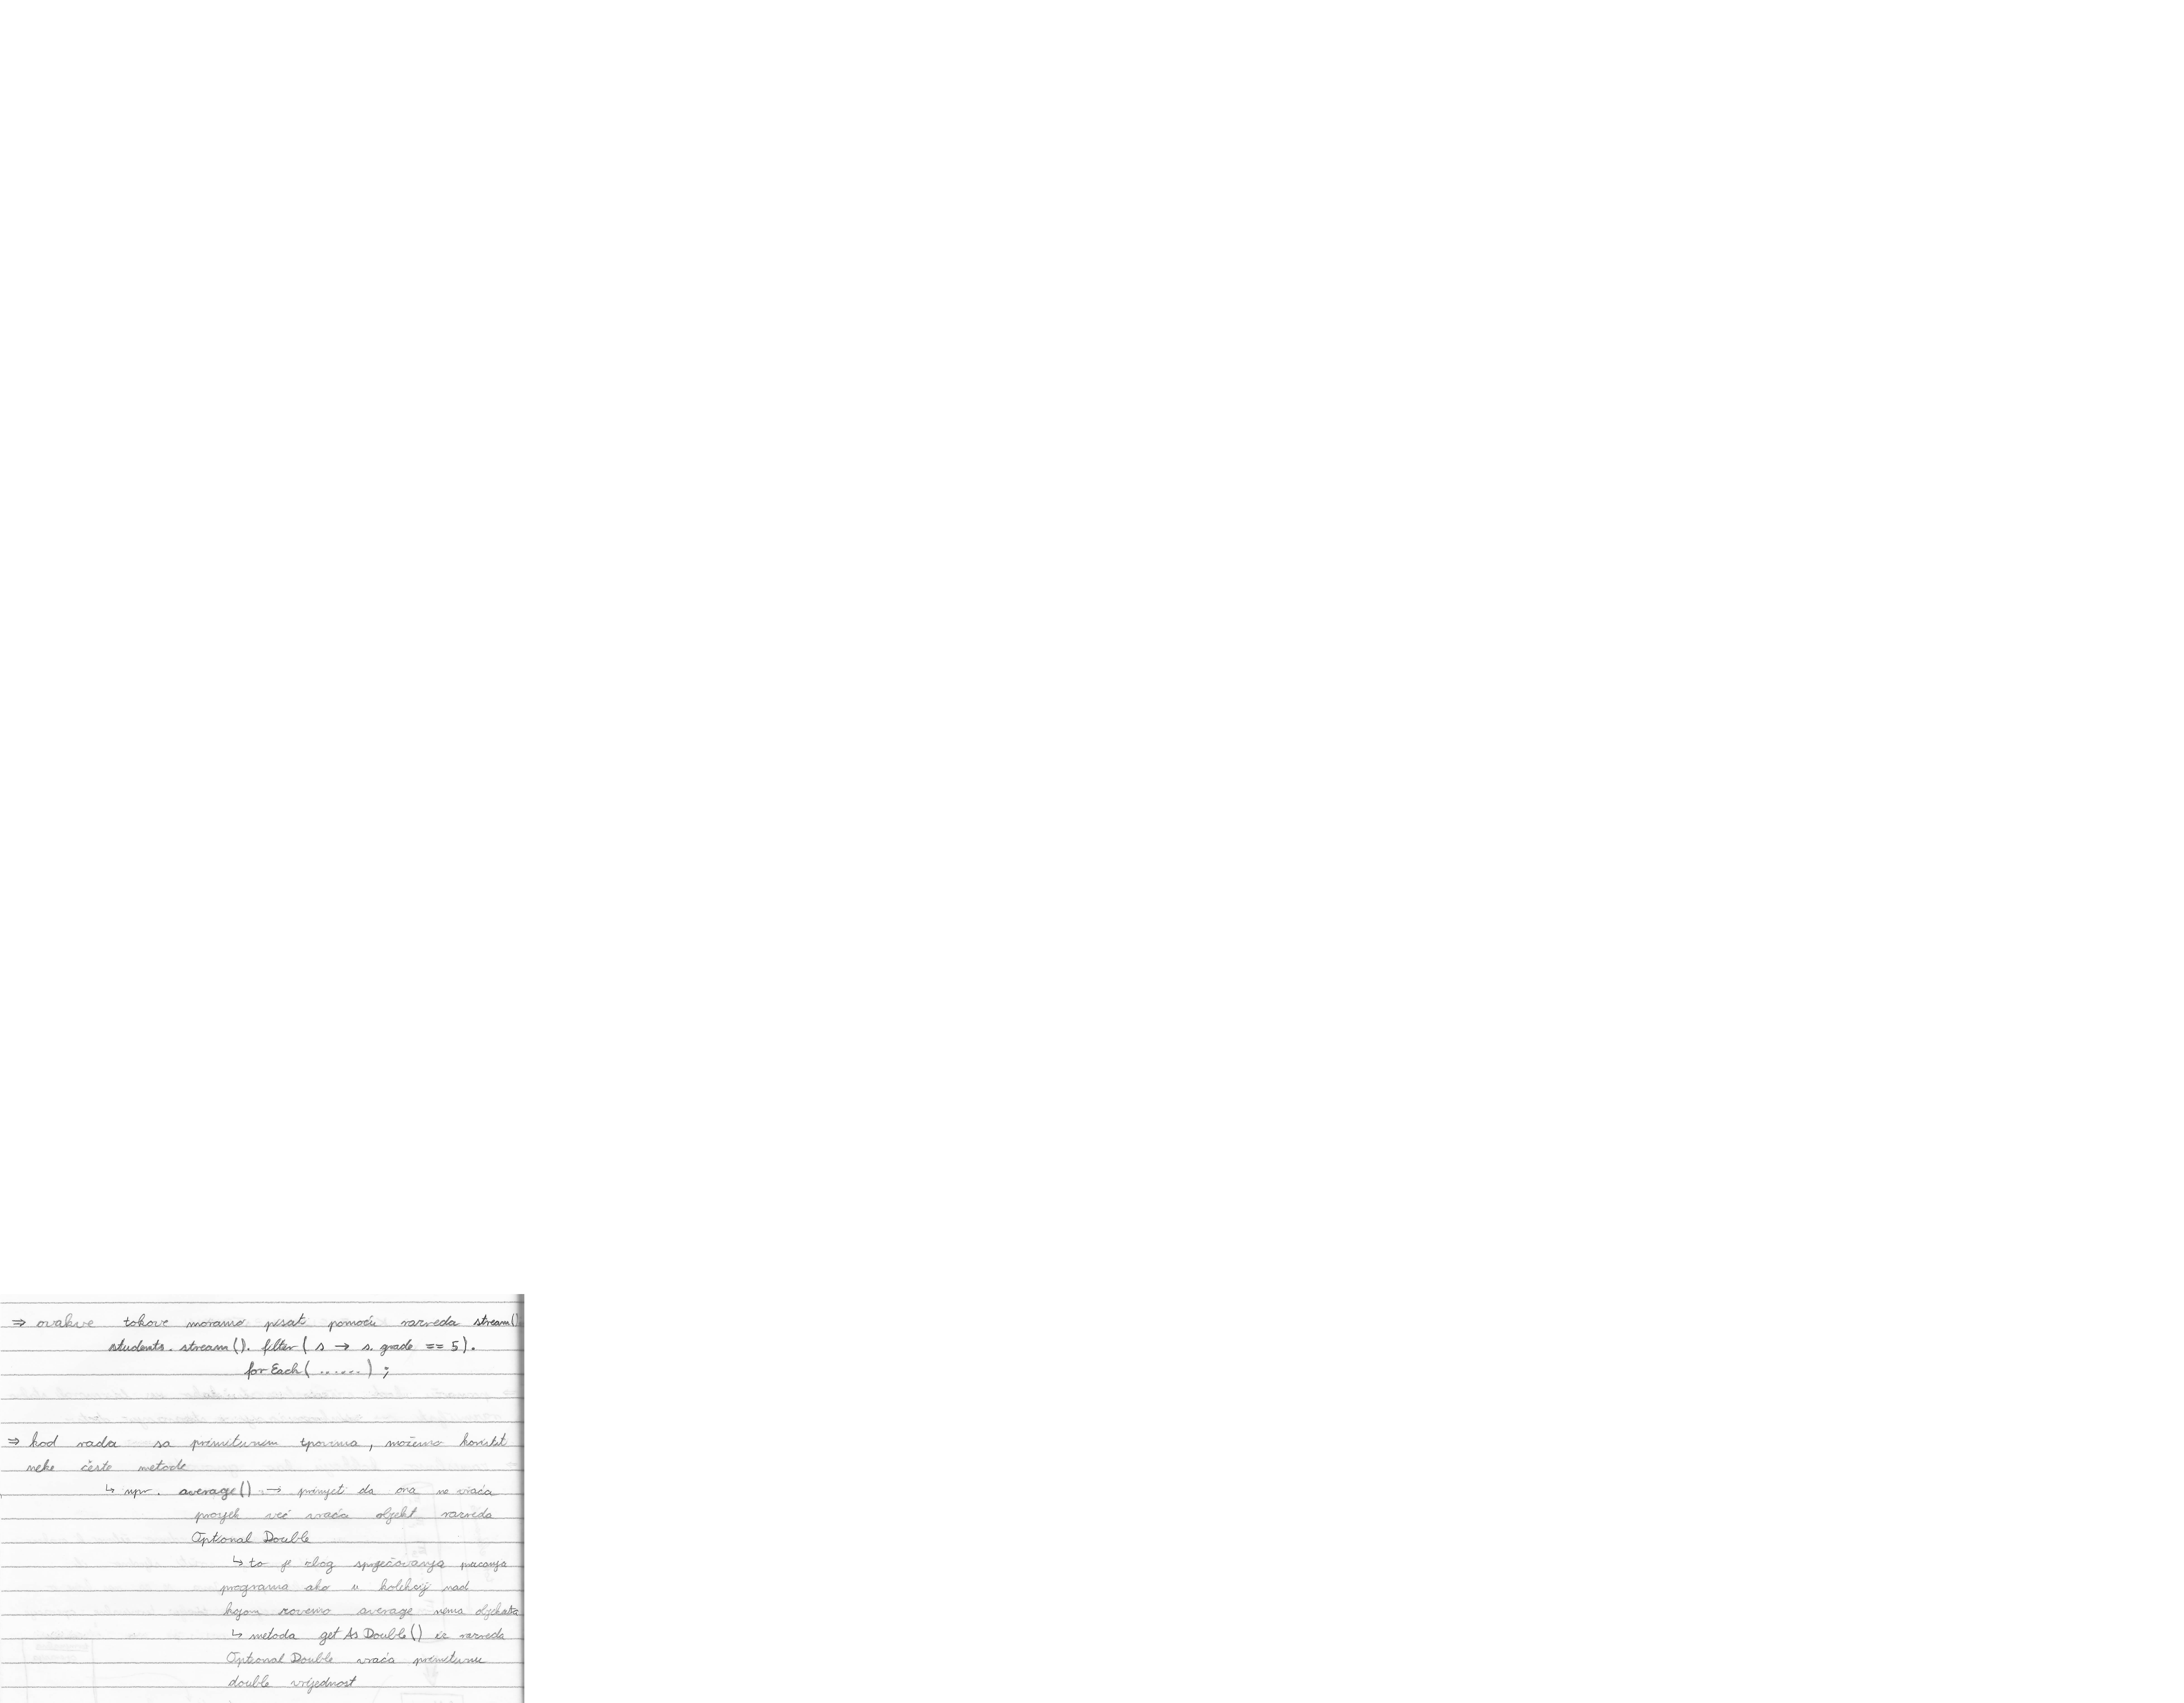 ⇒ ovakve tokove moramo pisat pomoću razreda stream()
students.stream().filter( s → s.grade == 5).
forEach( ...... ) ;
⇒ kod rada sa primitivnim tipovima, možemo koristit
neke česte metode
↳ npr. average() → primjeti da ona ne vraća
prosjek već vraća objekt razreda
Optional Double
↳ to je zbog sprječavanja pucanja
programa ako u kolekciji nad
kojom zovemo average nema objekata
↳ metoda getAsDouble() iz razreda
Optional Double vraća primitivnu
double vrijednost